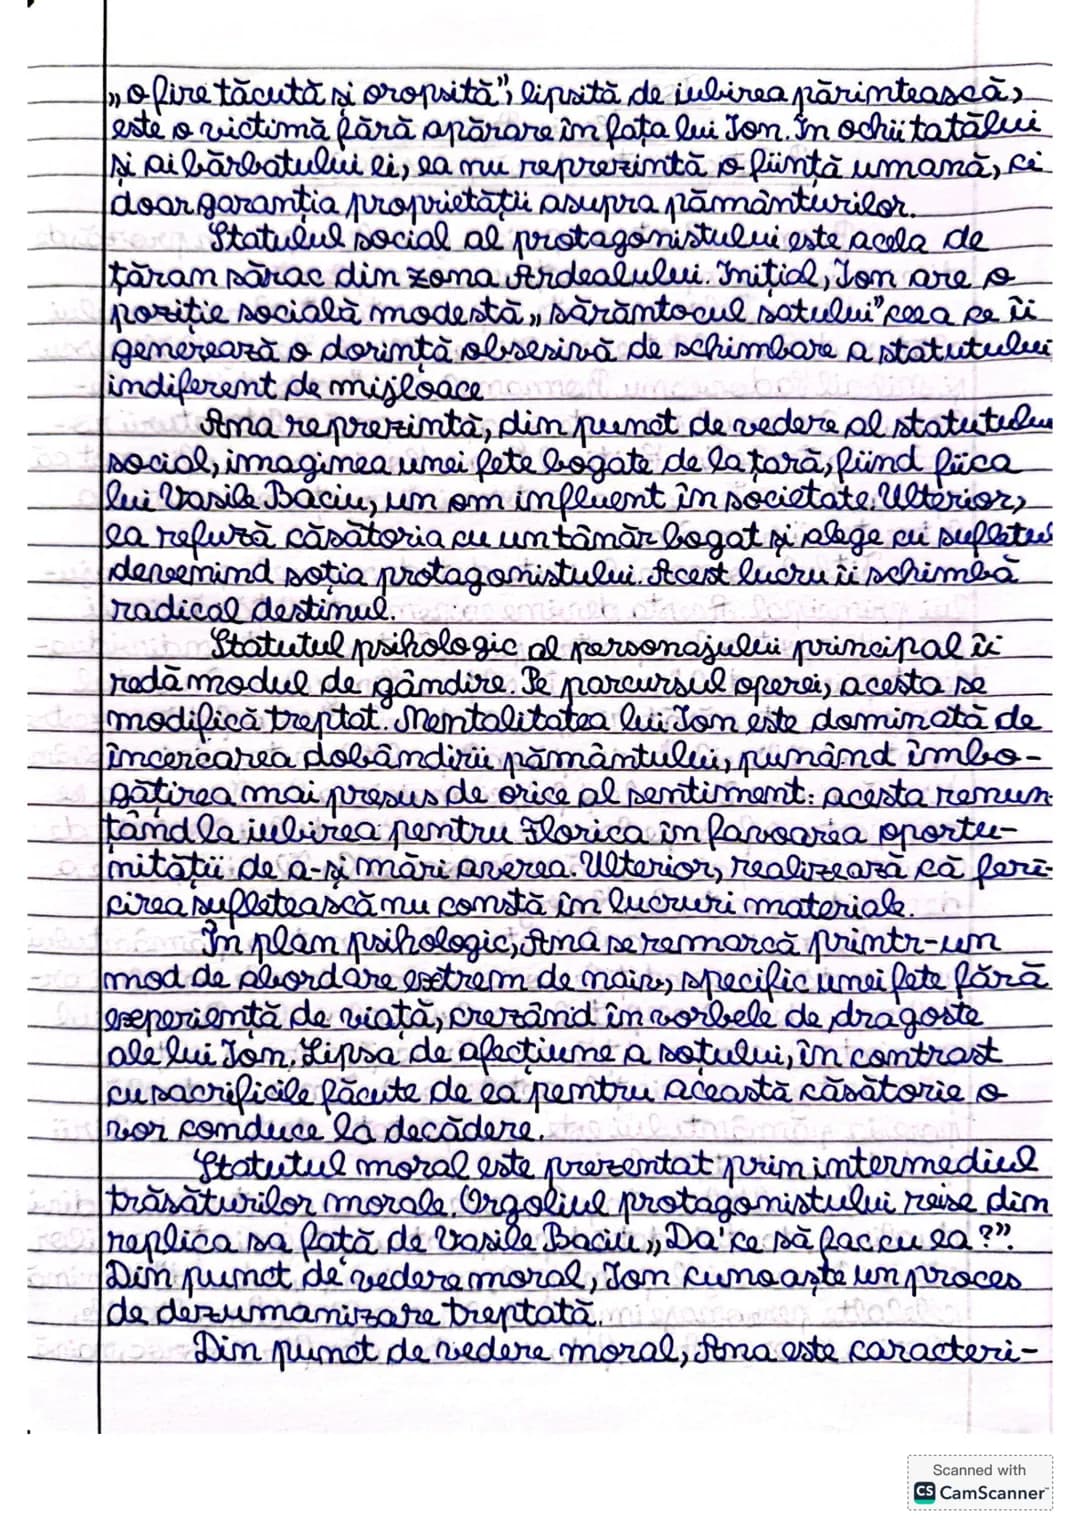 „o fire tăcută și oropsită”, lipsită de iubirea părintească,
este o victimă fără apărare în fața lui Ion. În ochii tatălui
și ai bărbatului ei, ea nu reprezintă o ființă umană, ci
doar garanția proprietății asupra pământurilor.
Statutul social al protagonistului este acela de
țăran sărac din zona Ardealului. Inițial, Ion are o
poziție socială modestă „sărăntocul satului” ceea ce îi
generează o dorință obsesivă de schimbare a statutului
indiferent de mijloace.
Ana reprezintă, din punct de vedere al statutului
social, imaginea unei fete bogate de la țară, fiind fiica
lui Vasile Baciu, un om influent în societate. Ulterior,
ea refuză căsătoria cu un tânăr bogat și alege cu sufletul
devenind soția protagonistului. Acest lucru îi schimbă
radical destinul.
Statutul psihologic al personajului principal îi
redă modul de gândire. Pe parcursul operei, acesta se
modifică treptat. Mentalitatea lui Ion este dominată de
încercarea dobândirii pământului, punând îmbo-
gățirea mai presus de orice al sentiment: acesta renun-
țând la iubirea pentru Florica în favoarea oportu-
nității de a-și mări averea. Ulterior, realizează că feri-
cirea sufletească nu constă în lucruri materiale.
În plan psihologic, Ana se remarcă printr-un
mod de abordare extrem de naiv, specific unei fete fără
experiență de viață, crezând în vorbele de dragoste
ale lui Ion. Lipsa de afecțiune a soțului, în contrast
cu sacrificiile făcute de ea pentru această căsătorie o
vor conduce la decădere.
Statutul moral este prezentat prin intermediul
trăsăturilor morale. Orgoliul protagonistului reise din
replica sa față de Vasile Baciu „Da' ce să fac cu ea ?”.
Din punct de vedere moral, Ion cunoaște un proces
de dezumanizare treptată.
Din punct de vedere moral, Ana este caracteri-
Scanned with
CS CamScanner